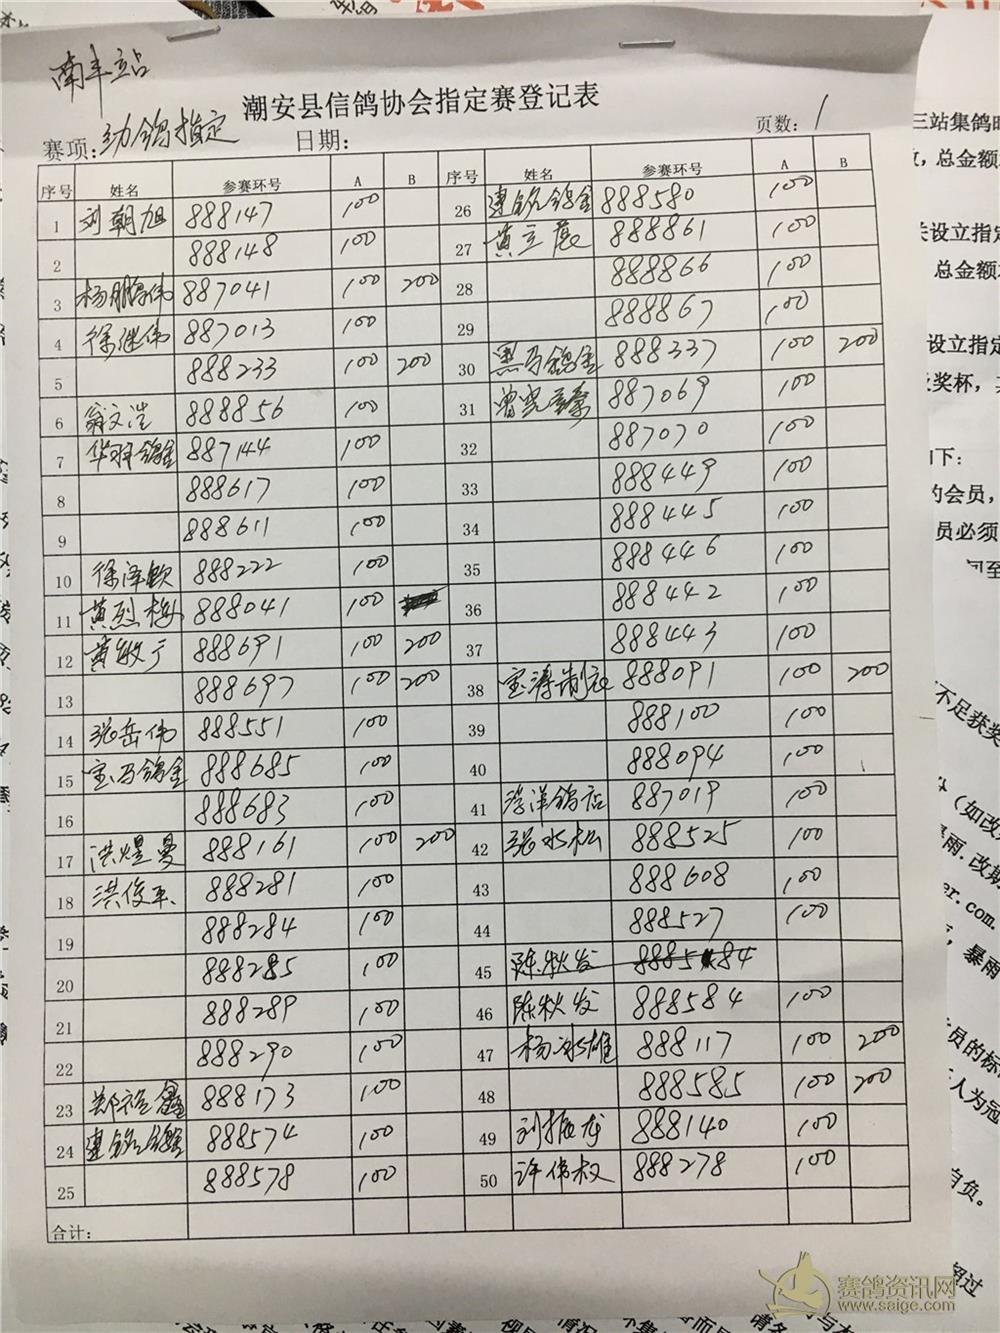 南丰站
潮安县信鸽协会指定赛登记表
赛项:幼鸽指定 日期: 页数: 1
序号 姓名 参赛环号 A B 序号 姓名 参赛环号 A B
1 刘朝旭 888147 100 26 建銘鸽舍 888580 100
2 888148 100 27 黄立展 888861 100
3 杨鹏伟 887041 100 200 28 888866 100
4 徐继伟 887013 100 29 888867 100
5 888233 100 200 30 黑马鸽舍 888337 100 200
6 翁文浩 888856 100 31 曾 887069 100
7 华羽鸽舍 887144 100 32 887070 100
8 888617 100 33 888449 100
9 888611 100 34 888445 100
10 徐泽歆 888222 100 35 888446 100
11 黄烈梅 888041 100 36 888442 100
12 黄敏于 888691 100 200 37 888443 100
13 888697 100 200 38 宝涛制衣 888091 100 200
14 张岳伟 888551 100 39 888100 100
15 宝马鸽舍 888685 100 40 888094 100
16 888683 100 41 洋鸽店 887019 100
17 洪煜曼 888161 100 200 42 张水松 888525 100
18 洪俊 888281 100 43 888608 100
19 888284 100 44 888527 100
20 888285 100 45 陈秋发 8885 84
21 888289 100 46 陈秋发 888584 100
22 888290 100 47 杨冰雄 888117 100 200
23 郑 鑫 888173 100 48 888585 100 200
24 建銘鸽舍 888574 100 49 刘振龙 888140 100
25 888578 100 50 许伟权 888278 100
合计:
三站集鸽时
总金额
设立指定
总金额
设立指定
奖杯,
下:
的会员,
员必须
不足获奖
(如改
暴雨.改期
er.com.
暴雨
员的标
人为冠
自负。
超过
赛鸽资讯网
www.saige.com